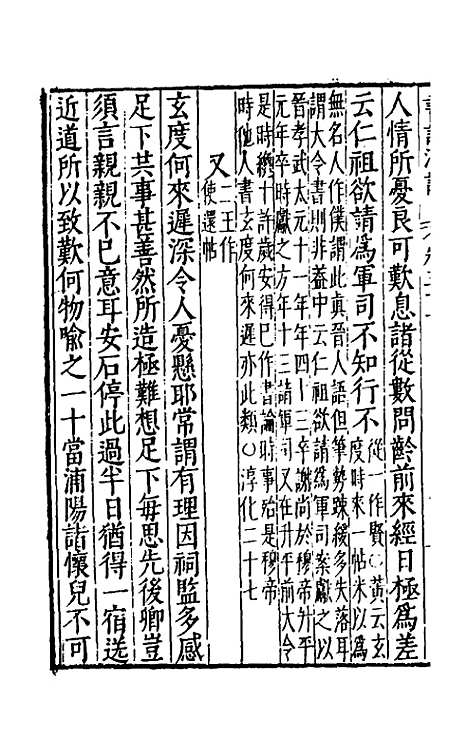 人情所憂良可歎息諸從數問齡前來經日極爲差
云仁祖欲請爲軍司不知行不
從一作賢○黃云玄
度時來一帖米以爲
無名人作僕謂此真晉人語但筆勢踈緩多失落耳
謂大令書則非葢中云仁祖欲請爲軍司案獻之以
晉孝武太元十一年年四十三卒謝尚於穆帝升平
元年卒時獻之方年十三請軍司又在升平前大令
是時纔十許歲安得巳作書論時事殆是穆帝
時他人書玄度何來遲亦此類○淳化二十七
又
二王作
使還帖
玄度何來遲深令人憂懸耶常謂有理因祠監多感
足下共事甚善然所造極難想足下每思先後卿豈
須言親親不巳意耳安石停此過半日猶得一宿送
近道所以致歎何物喻之一十當浦陽諸懷兒不可